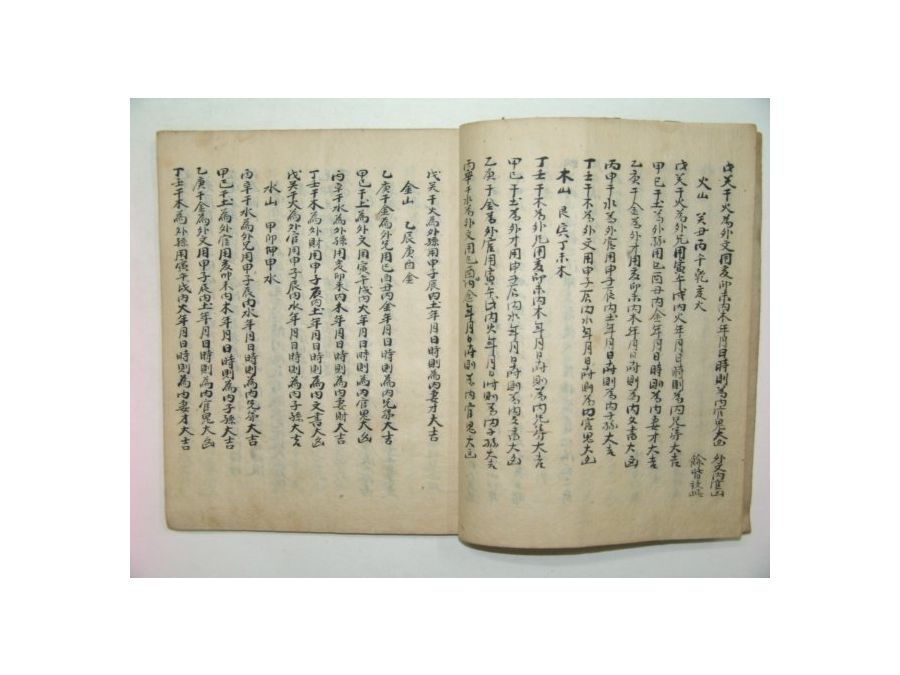 戊癸干火為外文用亥卯未內木年月日時則為內官鬼大凶 外文內官凶
餘皆放此
火山 癸丑丙午乾亥火
戊癸干火為外兄用寅午戌內火年月日時則為內兄弟大吉
甲己干土為外孫用巳酉丑內金年月日時則為內妻才大吉
乙庚干金為外才用亥卯未內木年月日時則為內文書大凶
丙辛干水為外官用申子辰內土年月日時則為內子孫大吉
丁壬干木為外文用申子辰內水年月日時則為內官鬼大凶
木山 艮寅丁未木
丁壬干木為外兄用亥卯未內木年月日時則為內兄弟大吉
甲己干土為外才用申子辰內水年月日時則為內文書大凶
乙庚干金為外官用寅午戌內火年月日時則為內子孫大吉
丙辛干水為外文用巳酉丑內金年月日時則為內官鬼大凶
戊癸干火為外孫用甲子辰內土年月日時則為內妻才大吉
金山 乙辰庚酉金
乙庚干金為外兄用巳酉丑內金年月日時則為內兄弟大吉
甲己干土為外文用寅午戌內火年月日時則為內官鬼大凶
丙辛干水為外孫用亥卯未內木年月日時則為內妻財大吉
丁壬干木為外財用甲子辰內土年月日時則為內文書大凶
戊癸干火為外官用甲子辰內水年月日時則為內子孫大吉
水山 甲卯卯申水
丙辛干水為外兄用甲子辰內水年月日時則為內兄弟大吉
甲己干土為外官用亥卯未內木年月日時則為內子孫大吉
乙庚干金為外文用甲子辰內土年月日時則為內官鬼大凶
丁壬干木為外孫用寅午戌內火年月日時則為內妻才大吉